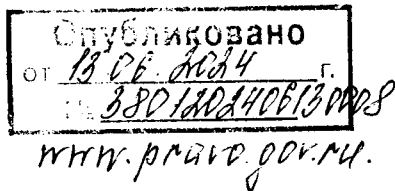 Опубликовано
от 13.06.2024 г.
№ 3801202406130008
www.pravo.gov.ru.